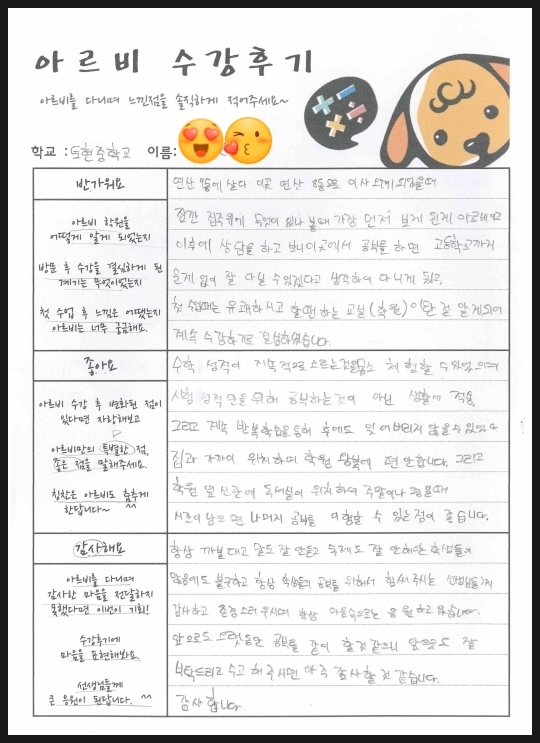 아르비 수강후기
아르비를 다니며 느낀점을 솔직하게 적어주세요~
학교 : 도현중학교 이름:
반가워요
연산 9동에 살다 이곳 연산 8동으로 이사 오게 되었을때
아르비 학원을
어떻게 알게 되었는지
방문 후 수강을 결심하게 된
계기는 무엇이었는지
첫 수업 후 느낌은 어땠는지
아르비는 너무 궁금해요.
잠깐 집주위에 무엇이 있나 볼때 가장 먼저 보게 된게 아르비였고
이후에 상담을 하고 보니 이곳에서 공부를 하면 고등학교까지
문제 없이 잘 다닐 수 있겠다고 생각하여 다니게 됬고,
첫 수업때는 유쾌하시고 할땐 하는 교실(학원)이란 걸 알게되어
계속 수강하기로 결심하였습니다.
좋아요
수학 성적이 지속적으로 오르는것을 몸소 체험할 수 있었으며
아르비 수강 후 변화된 점이
있다면 자랑해보고
아르비만의 특별한 점,
좋은 점을 말해주세요.
칭찬은 아르비도 춤추게
한답니다~ ^^
시험 성적만을 위해 공부하는것이 아닌 생활에 적용,
그리고 계속 반복학습을 통해 후에도 잊어버리지 않을 수 있었고
집과 가까이 위치하며 학원 왕복에 편안합니다. 그리고
학원 옆 신관에 독서실이 위치하여 주말이나 평일때
시간이 남으면 나머지 공부를 이행할 수 있는 점이 좋습니다.
감사해요
항상 까불대고 말도 잘 안듣고 숙제도 잘 안해오는 학생들이
아르비를 다니며
감사한 마음을 전달하지
못했다면 이번이 기회!
수강후기에
마음을 표현해봐요.
선생님들께
큰 응원이 된답니다. ^^
많음에도 불구하고 항상 학생들의 공부를 위해서 힘써주시는 선생님들께
감사하고 존경스러우시며 항상 마음속으로는 응원하고 있습니다.
앞으로도 오랫동안 공부를 같이 할것 같으니 앞으로도 잘
부탁드리고 수고해주시면 아주 감사할것 같습니다.
감사합니다.